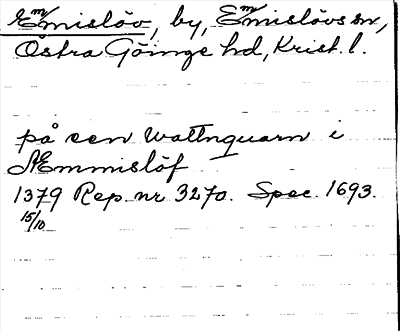 Emmislöv, by, Emmislövs sn,
Östra Göinge hd, Krist. l.
på een Wattnquarn i
Æmmislöf
1379 Rep. nr 3270. Spec. 1693.
15/10